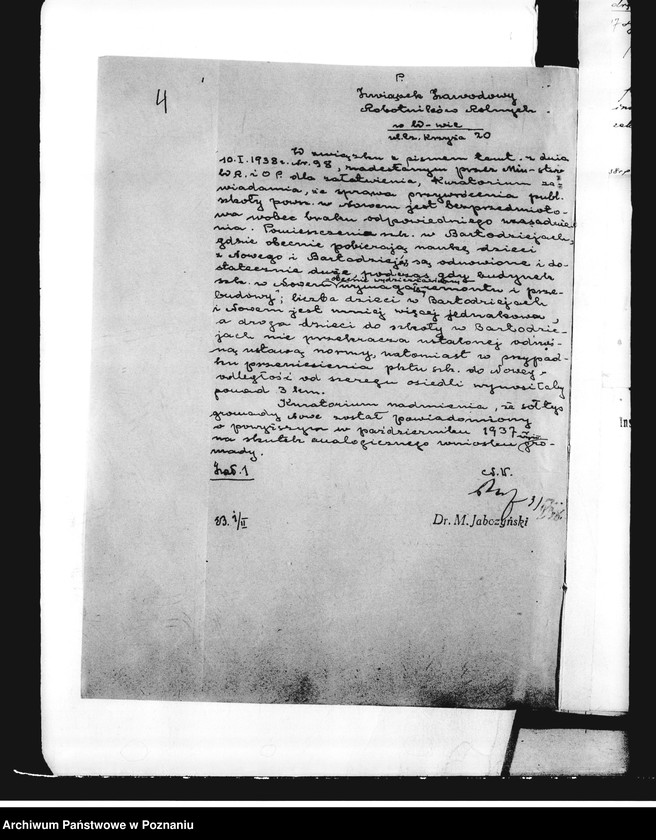 4
P.
Związek Zawodowy
Robotników Rolnych
w W-wie
ul. Św. Krzyża 20
W związku z pismem tamt. z dnia
10.I.1938 r. Nr. 98, nadesłanym przez Min-stwo
W.R. i O.P. dla załatwienia, Kuratorium za-
wiadamia, że sprawa przywrócenia publ.
szkoły powsz. w Nowem jest bezprzedmioto-
wa wobec braku odpowiedniego uzasadnie-
nia. Pomieszczenia szk. w Bartodziejach,
gdzie obecnie pobierają naukę dzieci
z Nowego i Bartodziej, są odnowione i do-
statecznie duże, podczas gdy budynek
szk. w Nowem obecnie wydzierżawiony wymaga remontu i prze-
budowy; liczba dzieci w Bartodziejach
i Nowem jest mniej więcej jednakowa,
a droga dzieci do szkoły w Bartodzie-
jach nie przekracza ustalonej
ustawą normy, natomiast w przypad-
ku przeniesienia pktu szk. do Nowej
odległości od szeregu osiedli wynosiłaby
ponad 3 km.
Kuratorium nadmienia, że sołtys
gromady Nowe został powiadomiony
o powyższym w październiku 1937
na skutek analogicznego wniosku gro-
mady.
Zał. 1
N.
Dr. M. Jabczyński
Archiwum Państwowe w Poznaniu